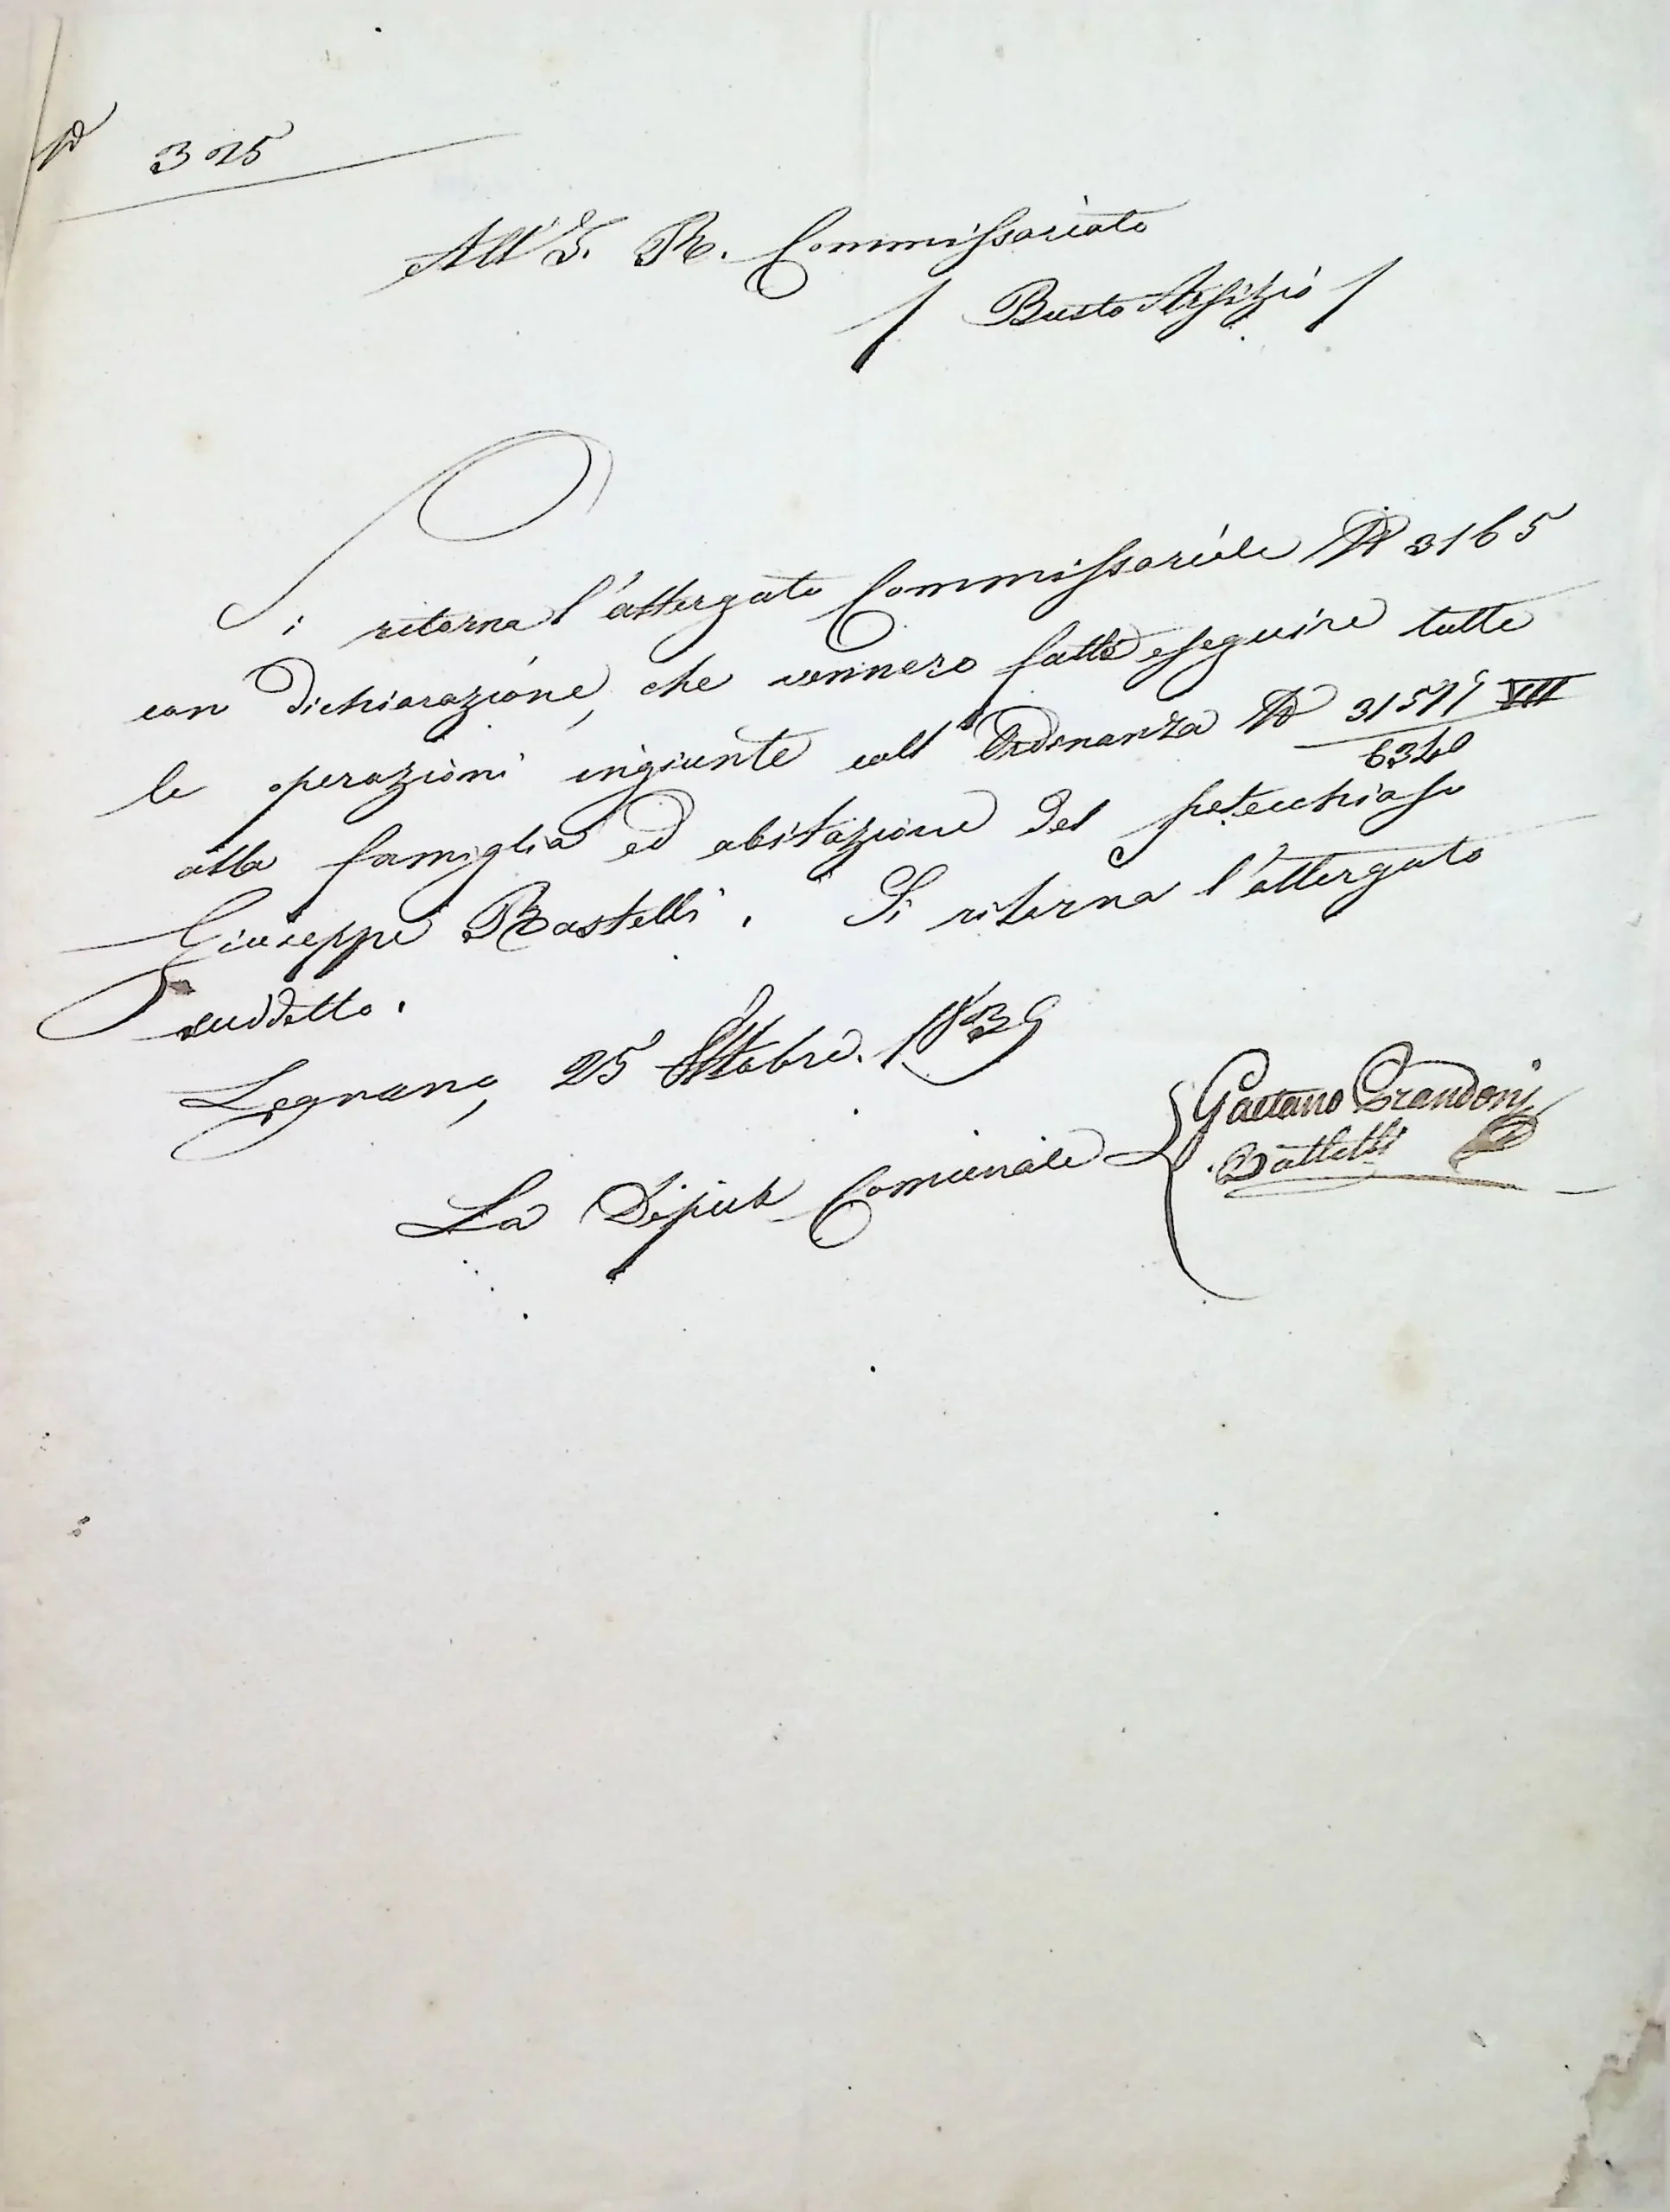 N° 325
All' I. R. Commissariato
/ Busto Arsizio /
Si ritorna l'attergato Commissariale N° 3165
con dichiarazione, che vennero fatte eseguire tutte
le operazioni ingiunte coll' Ordinanza N° 31579 VII
6340
alla famiglia ed abitazione del petecchioso
Giuseppe Rastelli. Si ritorna l'attergato
suddetto.
Legnano, 25 Ottobre. 1839
Gaetano Prandoni
La Deput Comunale